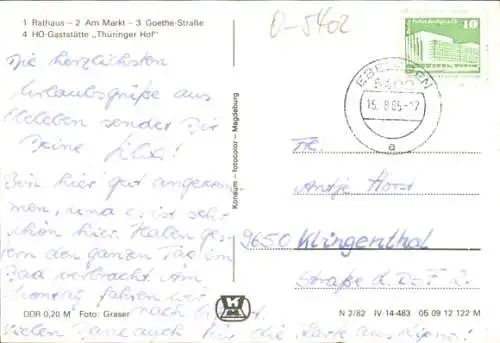 1 Rathaus – 2 Am Markt – 3 Goethe-Straße
4 HO-Gaststätte „Thüringer Hof"
O-5402
10
EBELEBEN
15. 8 85-17
a
Die herzlichsten
Urlaubsgrüße aus
Ebeleben sendet Dir
Deine
Bin hier gut angekom
men, und es ist sehr
schön hier. Haben ges
tern den ganzen Tag im
Bad verbracht. Am
Montag fahren wir
nach
Vielen Dank auch für die Karte aus
Konsum – fotocolor – Magdeburg
Fr.
Antje Horst
9650 Klingenthal
Straße d. DSF
DDR 0,20 M Foto: Graser
N 2/82 IV-14-483 05 09 12 122 M